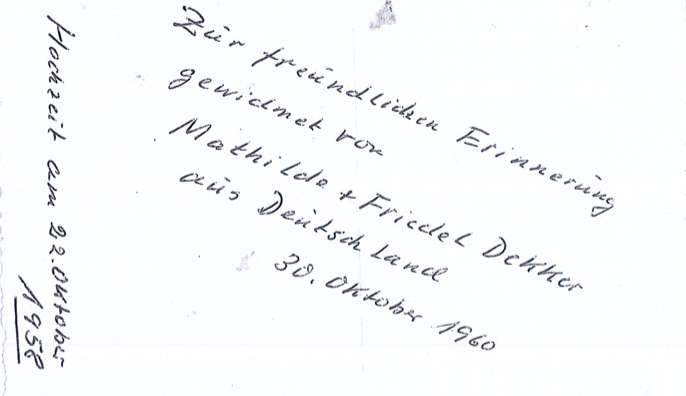 Zur freundlichen Erinnerung
gewidmet von
Mathilde + Friedel Dekker
aus Deutschland
30. Oktober 1960
Hochzeit am 22. Oktober
1958